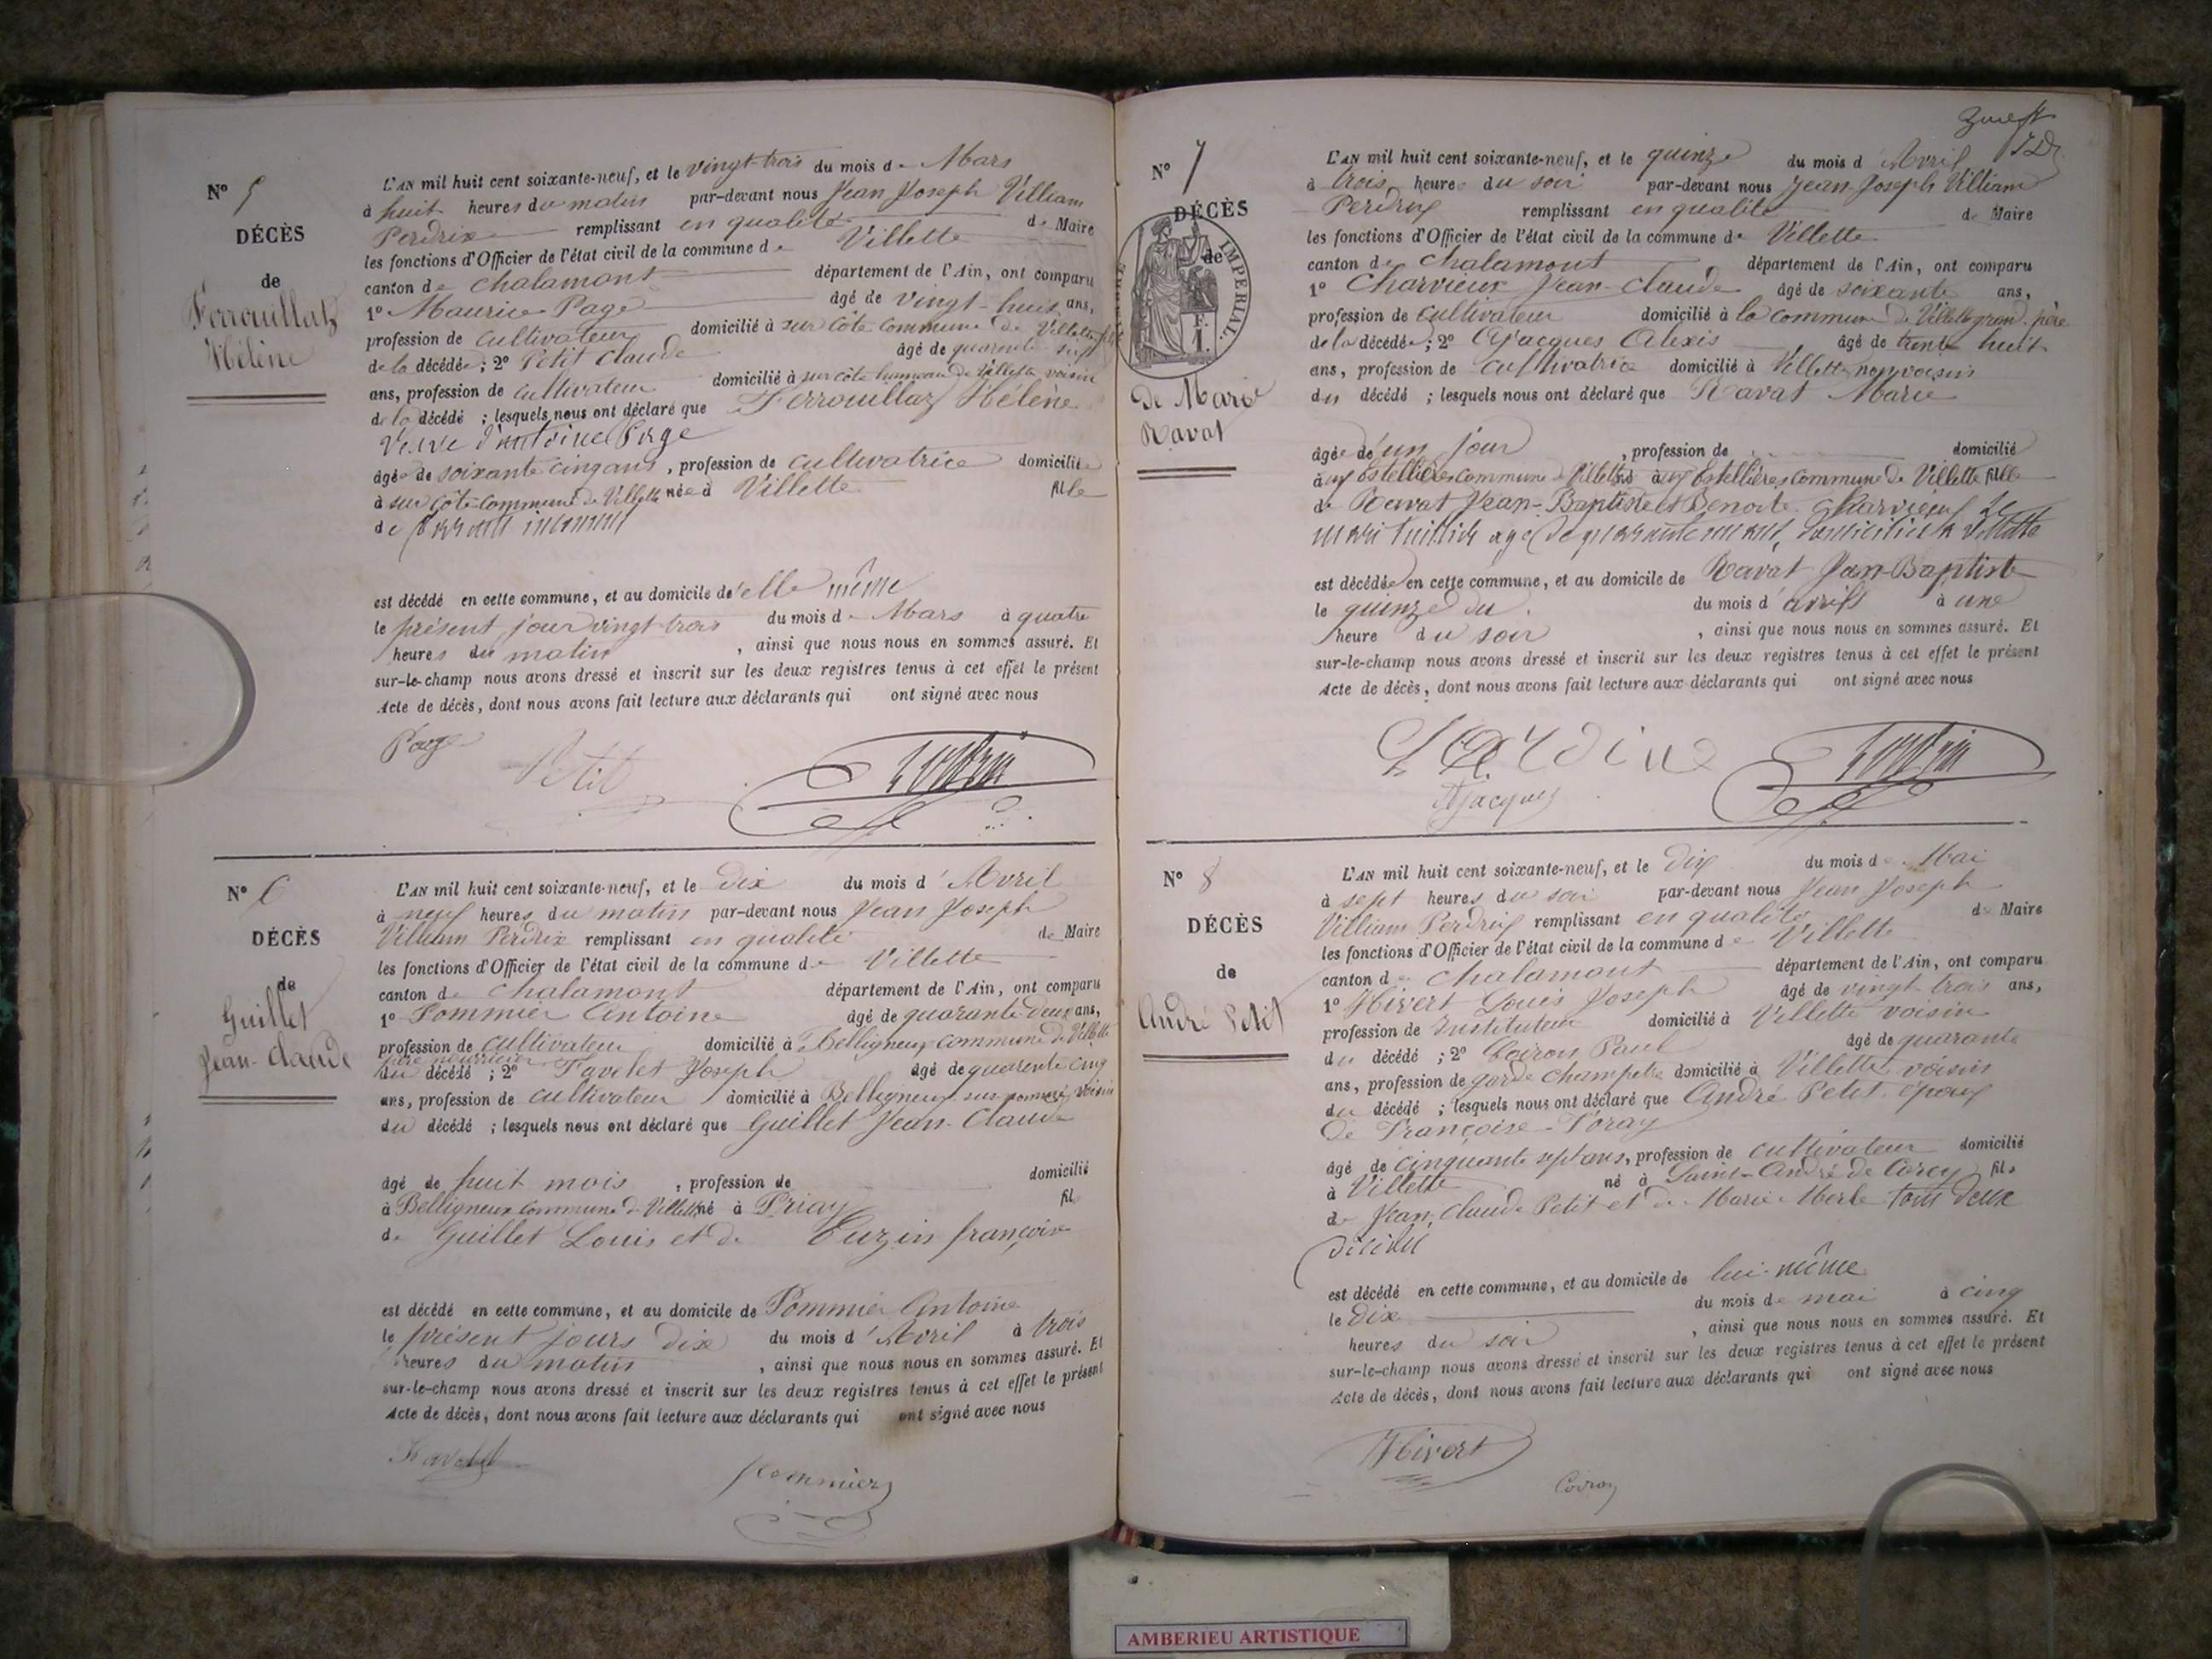 N° 5
DÉCÈS
de
Ferrouillat
Hélène
L'AN mil huit cent soixante-neuf, et le vingt-trois du mois de Mars
à huit heures du matin par-devant nous Jean Joseph Villiam
Perdrix remplissant en qualité de Maire
les fonctions d'Officier de l'état civil de la commune de Villette
canton de Chalamont département de l'Ain, ont comparu
1° Maurice Page âgé de vingt-huit ans,
profession de cultivateur domicilié à sur côte commune de Villette fils
de la décédée ; 2° Petit Claude âgé de quarante sept
ans, profession de cultivateur domicilié à sur côte hameau de Villette voisin
de la décédé ; lesquels nous ont déclaré que Ferrouillaz Hélène
Veuve d'antoine Page
âgée de soixante cinq ans, profession de cultivatrice domicilié
à sur côte commune de Villette née à Villette fille
de
est décédé en cette commune, et au domicile d'elle même
le présent jour vingt-trois du mois de Mars à quatre
heures du matin, ainsi que nous nous en sommes assuré. Et
sur-le-champ nous avons dressé et inscrit sur les deux registres tenus à cet effet le présent
Acte de décès, dont nous avons fait lecture aux déclarants qui ont signé avec nous
Page
Petit
N° 6
DÉCÈS
de
Guillet
Jean-Claude
L'AN mil huit cent soixante-neuf, et le dix du mois d'Avril
à neuf heures du matin par-devant nous Jean Joseph
Villiam Perdrix remplissant en qualité de Maire
les fonctions d'Officier de l'état civil de la commune de Villette
canton de Chalamont département de l'Ain, ont comparu
1° Pommier Antoine âgé de quarante-deux ans,
profession de cultivateur domicilié à Belligneux commune de Villette
père nourricier
du décédé ; 2° Favelet Joseph âgé de quarente cinq
ans, profession de cultivateur domicilié à Belligneux sus-nommé voisin
du décédé ; lesquels nous ont déclaré que Guillet Jean-Claude
âgé de huit mois, profession de domicilié
à Belligneux commune de Villette né à Priay fils
de Guillet Louis et de Cuzin françoise
est décédé en cette commune, et au domicile de Pommier Antoine
le présent jours dix du mois d'Avril à trois
heures du matin, ainsi que nous nous en sommes assuré. Et
sur-le-champ nous avons dressé et inscrit sur les deux registres tenus à cet effet le présent
Acte de décès, dont nous avons fait lecture aux déclarants qui ont signé avec nous
Favelet
Pommier
N° 7
DÉCÈS
de
IMPERIAL
de Marie
Ravat
L'AN mil huit cent soixante-neuf, et le quinze du mois d'Avril
à trois heures du soir par-devant nous Jean-Joseph Villiam
Perdrix remplissant en qualité de Maire
les fonctions d'Officier de l'état civil de la commune de Villette
canton de Chalamont département de l'Ain, ont comparu
1° Charvieux Jean-Claude âgé de soixante ans,
profession de cultivateur domicilié à la commune de Villette grand-père
de la décédée ; 2° Ajacques Alexis âgé de trente huit
ans, profession de cultivatrice domicilié à Villette non voisin
du décédé ; lesquels nous ont déclaré que Ravat Marie
âgée d'un jour, profession de domicilié
à Estellières commune de Villette né à Estellières commune de Villette fille
de Ravat Jean-Baptiste et Benoite Charvieux
âgé de quarante domicilié à Villette
est décédée en cette commune, et au domicile de Ravat Jean-Baptiste
le quinze du du mois d'avril à une
heure du soir, ainsi que nous nous en sommes assuré. Et
sur-le-champ nous avons dressé et inscrit sur les deux registres tenus à cet effet le présent
Acte de décès, dont nous avons fait lecture aux déclarants qui ont signé avec nous
Ajacques
N° 8
DÉCÈS
de
André Petit
L'AN mil huit cent soixante-neuf, et le dix du mois de Mai
à sept heures du soir par-devant nous Jean Joseph
Villiam Perdrix remplissant en qualité de Maire
les fonctions d'Officier de l'état civil de la commune de Villette
canton de Chalamont département de l'Ain, ont comparu
1° Hivert Louis Joseph âgé de vingt-trois ans,
profession de Instituteur domicilié à Villette voisin
du décédé ; 2° Coiron Paul âgé de quarante
ans, profession de garde champetre domicilié à Villette voisin
du décédé ; lesquels nous ont déclaré que André Petit époux
de Françoise Foray
âgé de cinquante sept ans, profession de cultivateur domicilié
à Villette né à Saint-André de Corcy fils
de Jean Claude Petit et de Marie Merle tous deux
décédés
est décédé en cette commune, et au domicile de lui-même
le Dix du mois de mai à cinq
heures du soir, ainsi que nous nous en sommes assuré. Et
sur-le-champ nous avons dressé et inscrit sur les deux registres tenus à cet effet le présent
Acte de décès, dont nous avons fait lecture aux déclarants qui ont signé avec nous
Hivert
Coiron
AMBERIEU ARTISTIQUE